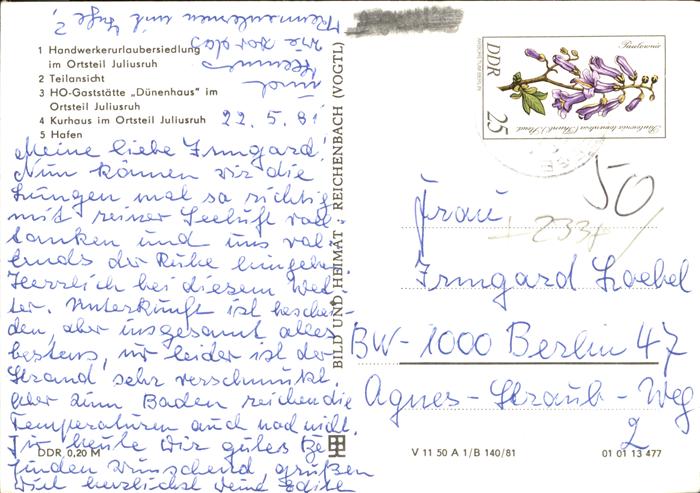 1 Handwerkerurlaubersiedlung
im Ortsteil Juliusruh
2 Teilansicht
3 HO-Gaststätte „Dünenhaus" im
Ortsteil Juliusruh
4 Kurhaus im Ortsteil Juliusruh
5 Hafen
22. 5. 81
Meine liebe Irmgard!
Nun können wir die
Lungen mal so richtig
mit reiner Seeluft voll-
tanken und uns vol-
lends der Ruhe hingeben
Herrlich bei diesem Wet-
ter. Unterkunft ist beschei-
den, aber insgesamt alles
bestens, nur leider ist der
Strand sehr verschmutzt.
Aber zum Baden reichen die
Temperaturen auch noch nicht.
Für heute Dir gutes Be-
finden wünschend grüßen
Dich herzlichst Deine Edith
und
Hannes
wie war das
Kennenlernen mit
DDR, 0,20 M
BILD UND HEIMAT REICHENBACH (VOGTL)
DDR
25
Paulownia
Paulownia tomentosa (Thunb.) Steud.
ARBORETUM BERLIN
50
Frau
Irmgard Loebel
BW-1000 Berlin 47
Agnes-Straub-Weg
2
V 11 50 A 1/B 140/81
01 01 13 477